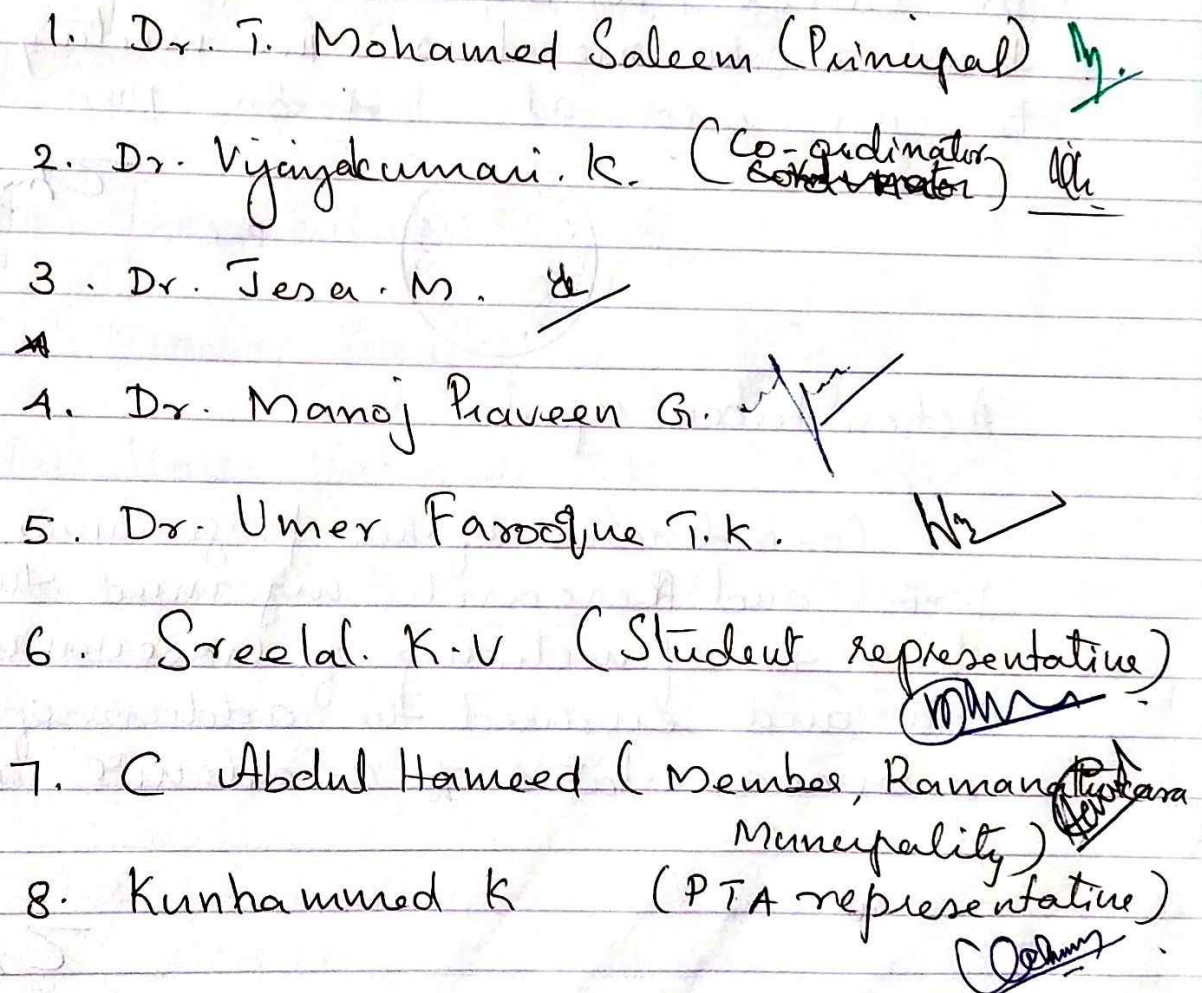 1. Dr. T. Mohamed Saleem (Principal)
2. Dr. Vijayakumari. K. (Co-ordinator)
3. Dr. Jesa. M.
4. Dr. Manoj Praveen G.
5. Dr. Umer Farooque T.K.
6. Sreelal. K.V (Student representative)
7. C Abdul Hameed (Member,
Municipality)
8. Kunhammed K (PTA representative)